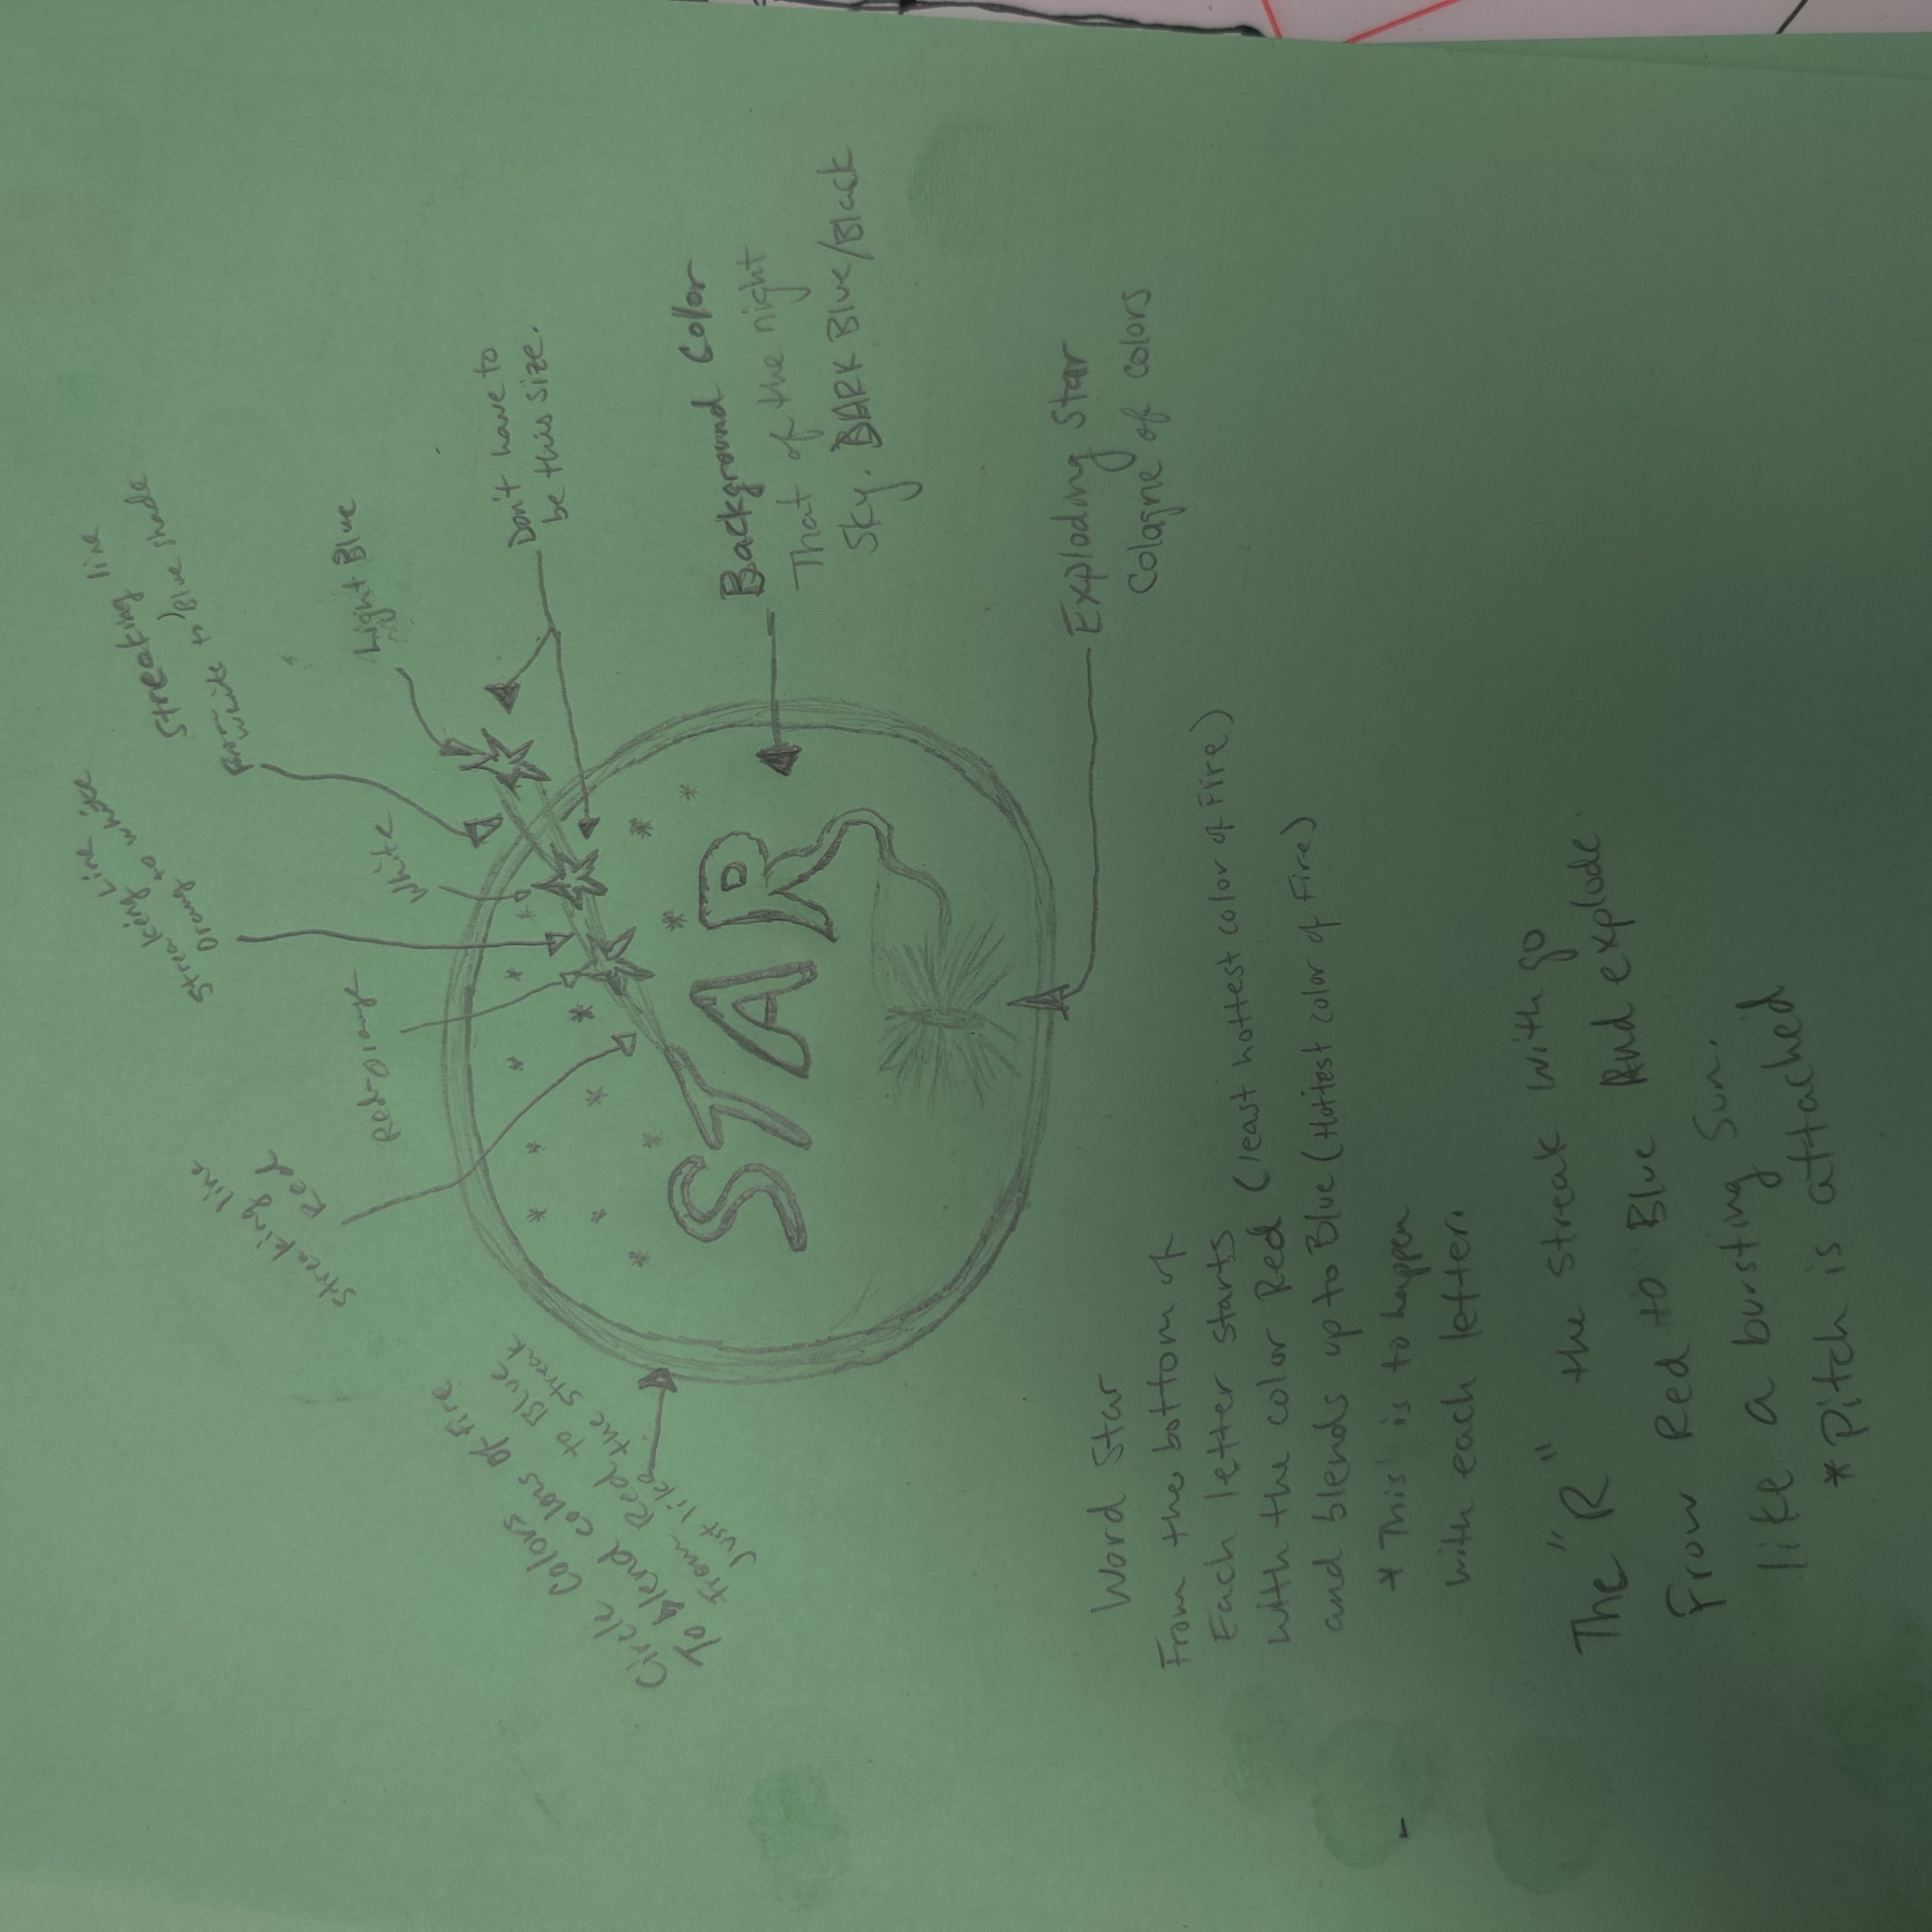 Streaking line
From white to Blue shade
Streaking Line
Orang to white
Light Blue
Don't have to
be this size.
White
Red-Orange
Streaking line
Red
Background Color
That of the night
Sky. DARK Blue/Black
Circle Colors
To blend colors of fire
from Red to Blue
Just like the streak
STAR
Exploding Star
Colagne of colors
Word Star
From the bottom of
Each letter starts
with the color Red (least hottest color of Fire)
and blends up to Blue (Hottest color of Fire)
* This is to happen
with each letter.
The "R" the streak with go
From Red to Blue And explode.
like a bursting Sun.
* Pitch is attached